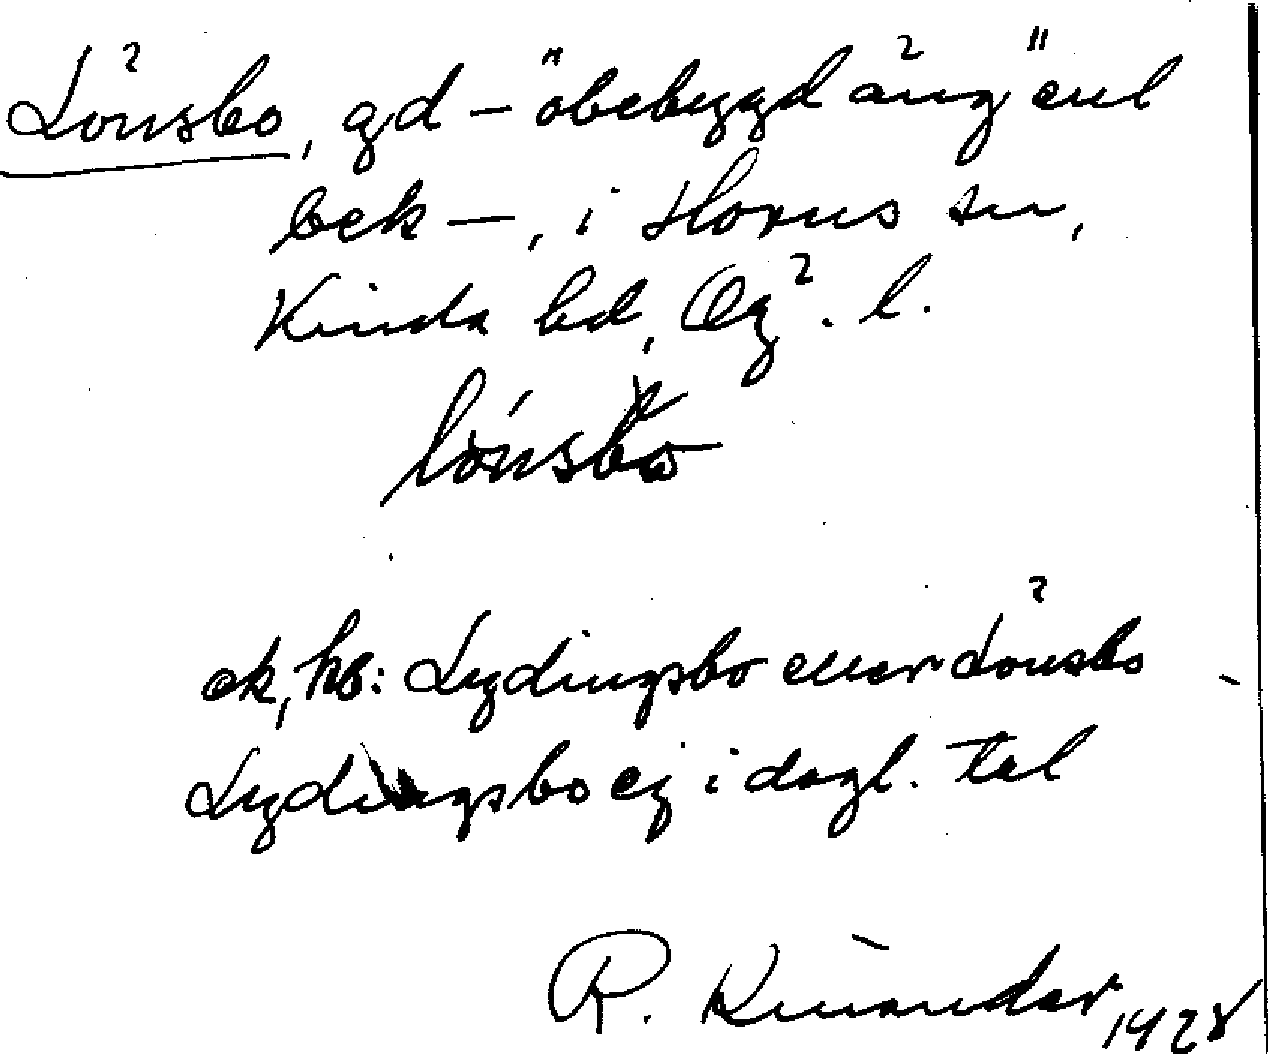 Lönsbo, gd – "obebyggd äng" enl
bek –, i Horns sn,
Kinda hd, Ög. l.
lönsbo
ek, hb: Lydingsbo eller Lönsbo
Lydingsbo ej i dagl. tal
R. Kinander 1928